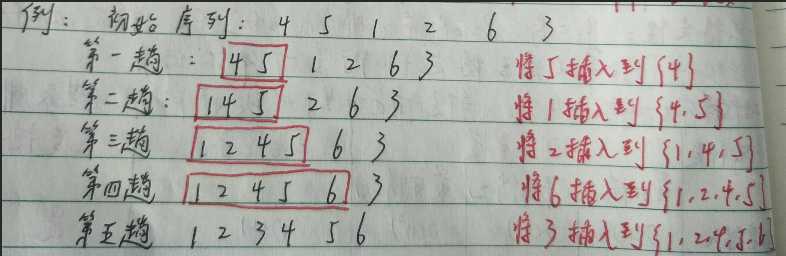 例: 初始序列: 4 5 1 2 6 3
第一趟: 4 5 1 2 6 3 将5插入到{4}
第二趟: 1 4 5 2 6 3 将1插入到{4,5}
第三趟 1 2 4 5 6 3 将2插入到{1,4,5}
第四趟 1 2 4 5 6 3 将6插入到{1,2,4,5}
第五趟 1 2 3 4 5 6 将3插入到{1,2,4,5,6}